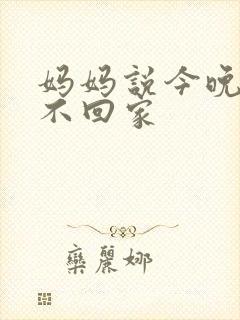 妈妈説今晚
不回家
欒麗娜